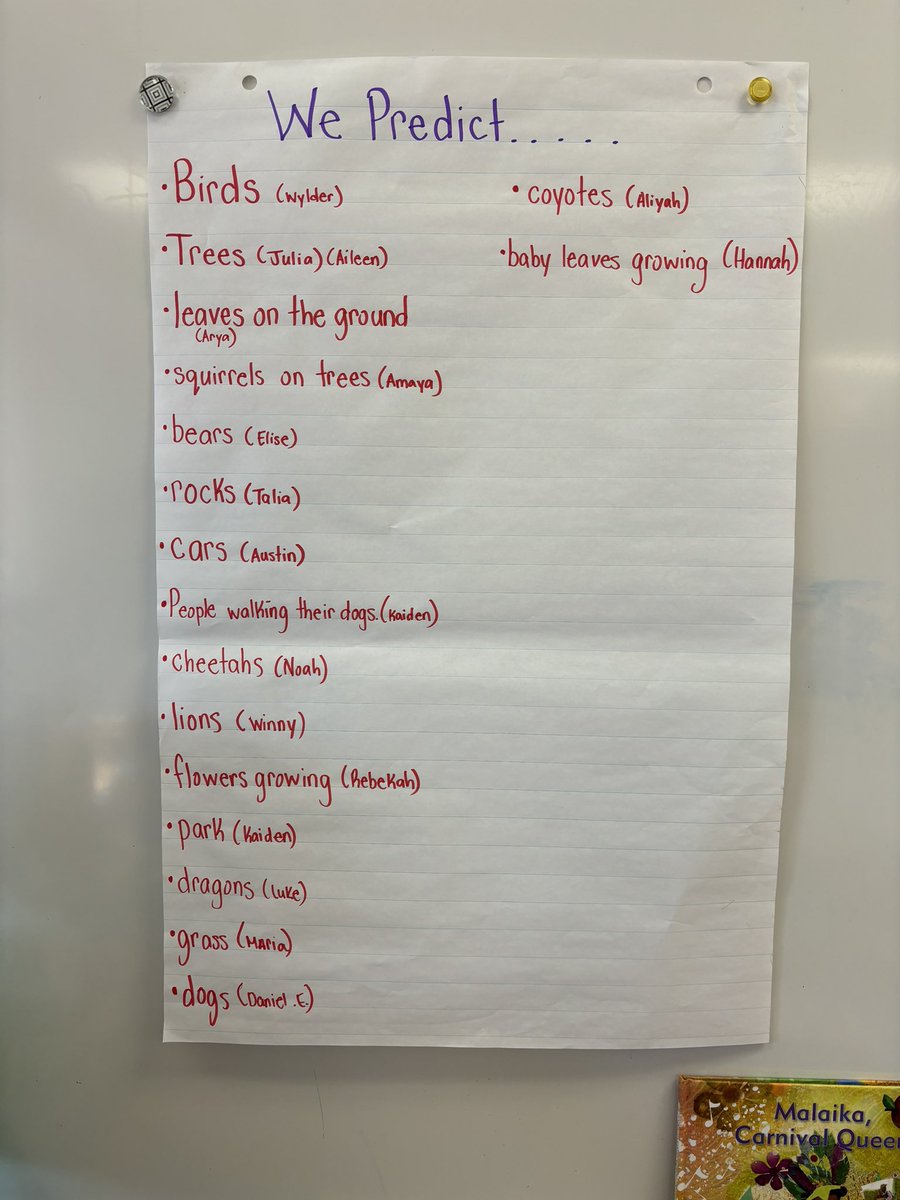 We Predict.....
• Birds (Wylder)
• Trees (Julia) (Aileen)
• leaves on the ground
(Arya)
• squirrels on trees (Amaya)
• bears (Elise)
• rocks (Talia)
• cars (Austin)
• People walking their dogs. (Kaiden)
• cheetahs (Noah)
• lions (Winny)
• flowers growing (Rebekah)
• park (Kaiden)
• dragons (Luke)
• grass (Maria)
• dogs (Daniel .E.)
• coyotes (Aliyah)
• baby leaves growing (Hannah)
Malaika,
Carnival Queen